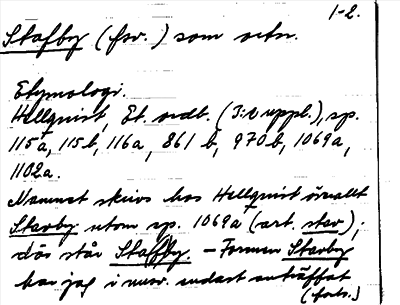 1-2.
Stafby (fsv.) som ortn.
Etymologi.
Hellquist, Et. ordb. (3:e uppl.), sp.
115a, 115b, 116a, 861 b, 970b, 1069a,
1102a.
Namnet skrivs hos Hellquist överallt
Stavby utom sp. 1069a (art. stav);
där står Staffby. – Formen Stavby
har jag i nusv. endast anträffat
(forts.)